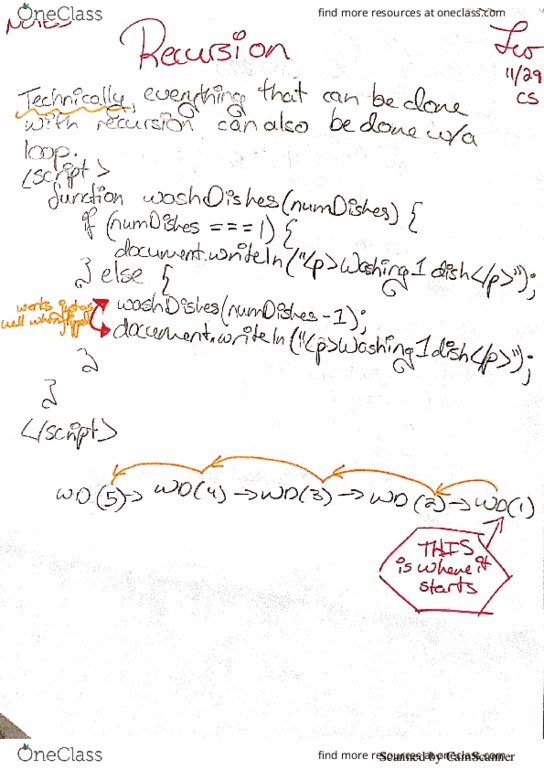 OneClass
find more resources at oneclass.com
NOTES
Recursion
11/29
CS
Technically, everything that can be done
with recursion can also be done w/a
loop.
<script>
function washDishes(numDishes) {
if (numDishes === 1) {
document.writeln("<p>Washing 1 dish</p>");
} else {
works just as
well when flipped
washDishes(numDishes-1);
document.writeln("<p>Washing 1 dish</p>");
}
}
</script>
WD(5)-> WD(4) -> WD(3) -> WD(2) -> WD(1)
THIS
is where it
starts
OneClass
find more resources at oneclass.com
Scanned by CamScanner